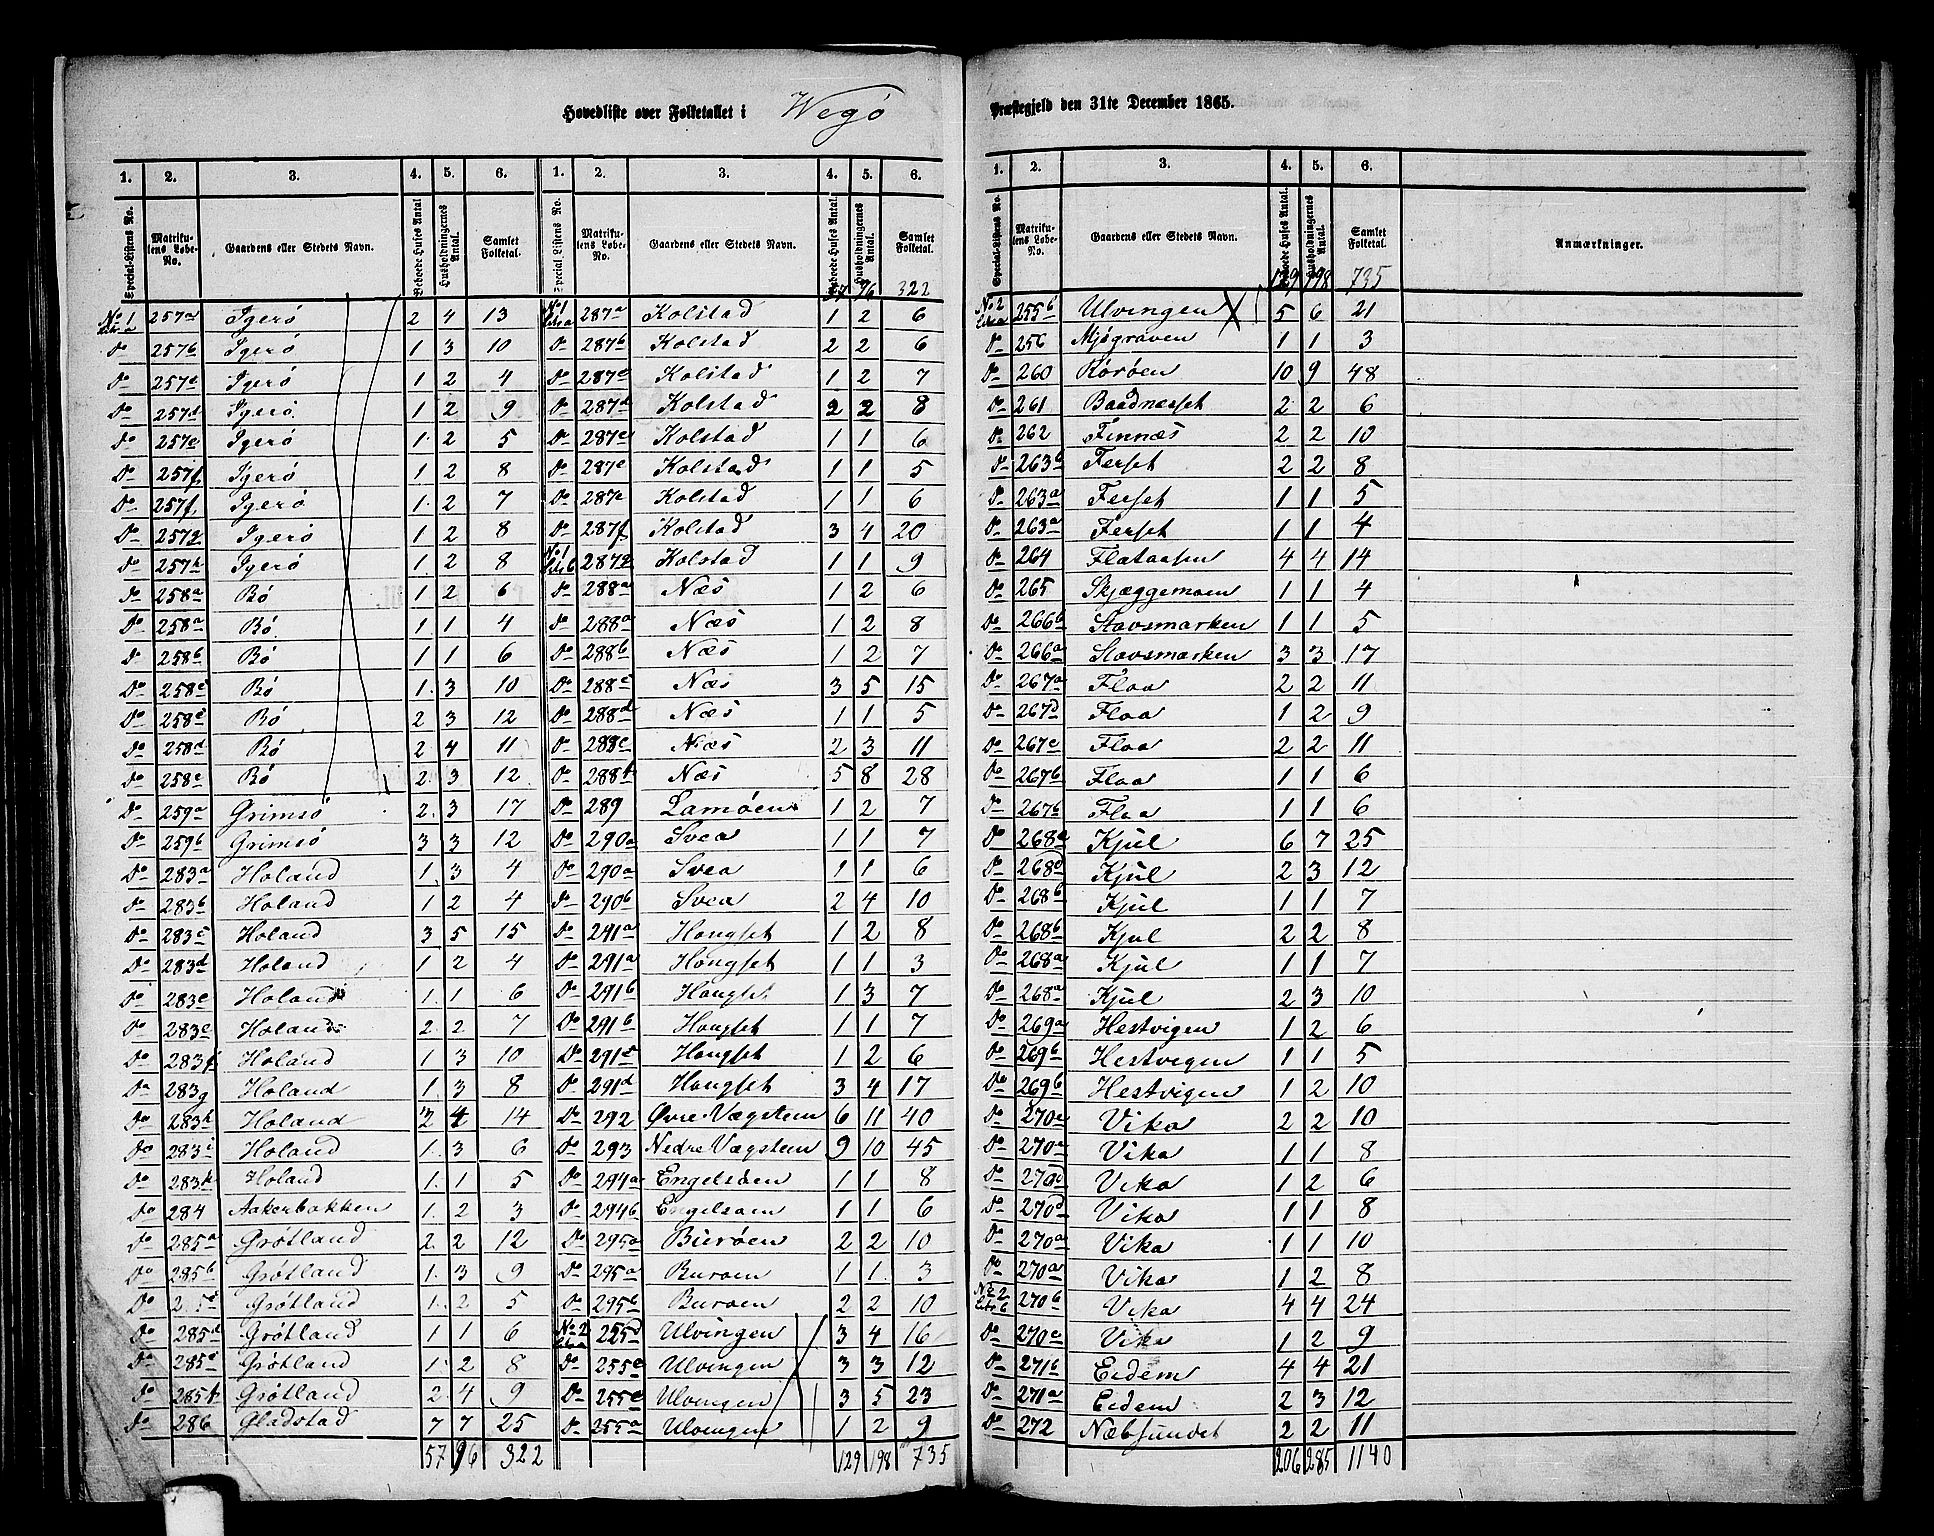 Hovedliste over Folketallet i Wegø Præstegjeld den 31te December 1865.
1. 2. 3. 4. 5. 6. 1. 2. 3. 4. 5. 6.
Special-Listens No. Matrikulens Løbe-No. Gaardens eller Stedets Navn. Beboede Huses Antal Husholdningernes Antal. Samlet Folketal.
Special Listens No. Matrikulens Løbe-No. Gaardens eller Stedets Navn. Beboede Huses Antal. Husholdningernes Antal. Samlet Folketal.
57 96 322
No 1 Litr a 257a Igerø 2 4 13
Do 257b Igerø 1 3 10
Do 257c Igerø 1 2 4
Do 257d Igerø 1 2 9
Do 257e Igerø 1 2 5
Do 257f Igerø 1 2 8
Do 257f Igerø 1 2 7
Do 257g Igerø 1 2 8
Do 257h Igerø 1 2 8
Do 258a Bø 1 2 6
Do 258a Bø 1 1 4
Do 258b Bø 1 1 6
Do 258c Bø 1 3 10
Do 258c Bø 2 3 12
Do 258d Bø 2 4 11
Do 258e Bø 2 3 12
Do 259a Grimsø 2 3 17
Do 259b Grimsø 3 3 12
Do 283a Holand 1 3 4
Do 283b Holand 1 2 4
Do 283c Holand 3 5 15
Do 283d Holand 1 2 4
Do 283e Holand 1 1 6
Do 283e Holand 2 2 7
Do 283f Holand 1 3 10
Do 283g Holand 1 3 8
Do 283h Holand 2 4 14
Do 283i Holand 1 3 6
Do 283k Holand 1 1 5
Do 284 Aakerbakken 1 2 3
Do 285a Grøtland 2 2 12
Do 285b Grøtland 1 3 9
Do Grøtland 1 2 5
Do 285d Grøtland 1 1 6
Do 285e Grøtland 1 2 8
Do 285f Grøtland 2 4 9
Do 286 Gladstad 7 7 25
57 96 322
No 1 Litr a 287a Kolstad 1 2 6
Do 287b Kolstad 2 2 6
Do 287c Kolstad 1 2 7
Do 287d Kolstad 2 2 8
Do 287e Kolstad 1 1 6
Do 287e Kolstad 1 1 5
Do 287e Kolstad 1 1 6
Do 287f Kolstad 3 4 20
No 1 Litr b 287g Kolstad 1 1 9
Do 288a Næs 1 2 6
Do 288a Næs 1 2 8
Do 288b Næs 1 2 7
Do 288c Næs 3 5 15
Do 288d Næs 1 1 5
Do 288e Næs 2 3 11
Do 288f Næs 5 8 28
Do 289 Lamøen 1 2 7
Do 290a Svea 1 1 7
Do 290a Svea 1 1 6
Do 290b Svea 2 4 10
Do 291a Hongset 1 2 8
Do 291a Hongset 1 1 3
Do 291b Hongset 1 3 7
Do 291b Hongset 1 1 7
Do 291c Hongset 1 2 6
Do 291d Hongset 3 4 17
Do 292 Øvre Vægstem 6 11 40
Do 293 Nedre Vægstem 9 10 45
Do 294a Engelsøen 1 1 8
Do 294b Engelsøen 1 1 6
Do 295a Burøen 2 2 10
Do 295a Burøen 1 1 3
Do 295b Burøen 2 2 10
No 2 Litr a 255d Ulvingen 3 4 16
Do 255e Ulvingen 3 3 12
Do 255c Ulvingen 3 5 23
Do 255a Ulvingen 1 2 9
129 198 735
1. 2. 3. 4. 5. 6.
Special-Listens No. Matrikulens Løbe-No. Gaardens eller Stedets Navn. Beboede Huses Antal. Husholdningernes Antal. Samlet Folketal. Anmærkninger.
129 198 735
No 2 Litr a 255b Ulvingen 5 6 21
Do 256 Mjøgraven 1 1 3
Do 260 Rørøen 10 9 48
Do 261 Baadnæsset 2 2 6
Do 262 Finnæs 2 2 10
Do 263b Ferset 2 2 8
Do 263a Ferset 1 1 5
Do 263a Ferset 1 1 4
Do 264 Flataasen 4 4 14
Do 265 Skjæggemoen 1 1 4
Do 266b Stavsmarken 1 1 5
Do 266a Stavsmarken 3 3 17
Do 267a Flaa 2 2 11
Do 267d Flaa 1 2 9
Do 267c Flaa 2 2 11
Do 267b Flaa 1 1 6
Do 267b Flaa 1 1 6
Do 268a Kjul 6 7 25
Do 268d Kjul 2 3 12
Do 268b Kjul 1 1 7
Do 268b Kjul 2 2 8
Do 268a Kjul 1 1 7
Do 268a Kjul 2 3 10
Do 269a Hestvigen 1 2 6
Do 269b Hestvigen 1 1 5
Do 269b Hestvigen 1 2 10
Do 270c Vika 2 2 10
Do 270a Vika 1 1 8
Do 270d Vika 1 2 6
Do 270d Vika 1 1 8
Do 270a Vika 1 1 10
Do 270a Vika 1 2 8
No 2 Litr b 270b Vika 4 4 24
Do 270e Vika 1 2 9
Do 271b Eidem 4 4 21
Do 271a Eidem 2 3 12
Do 272 Næbsundet 2 2 11
206 285 1140